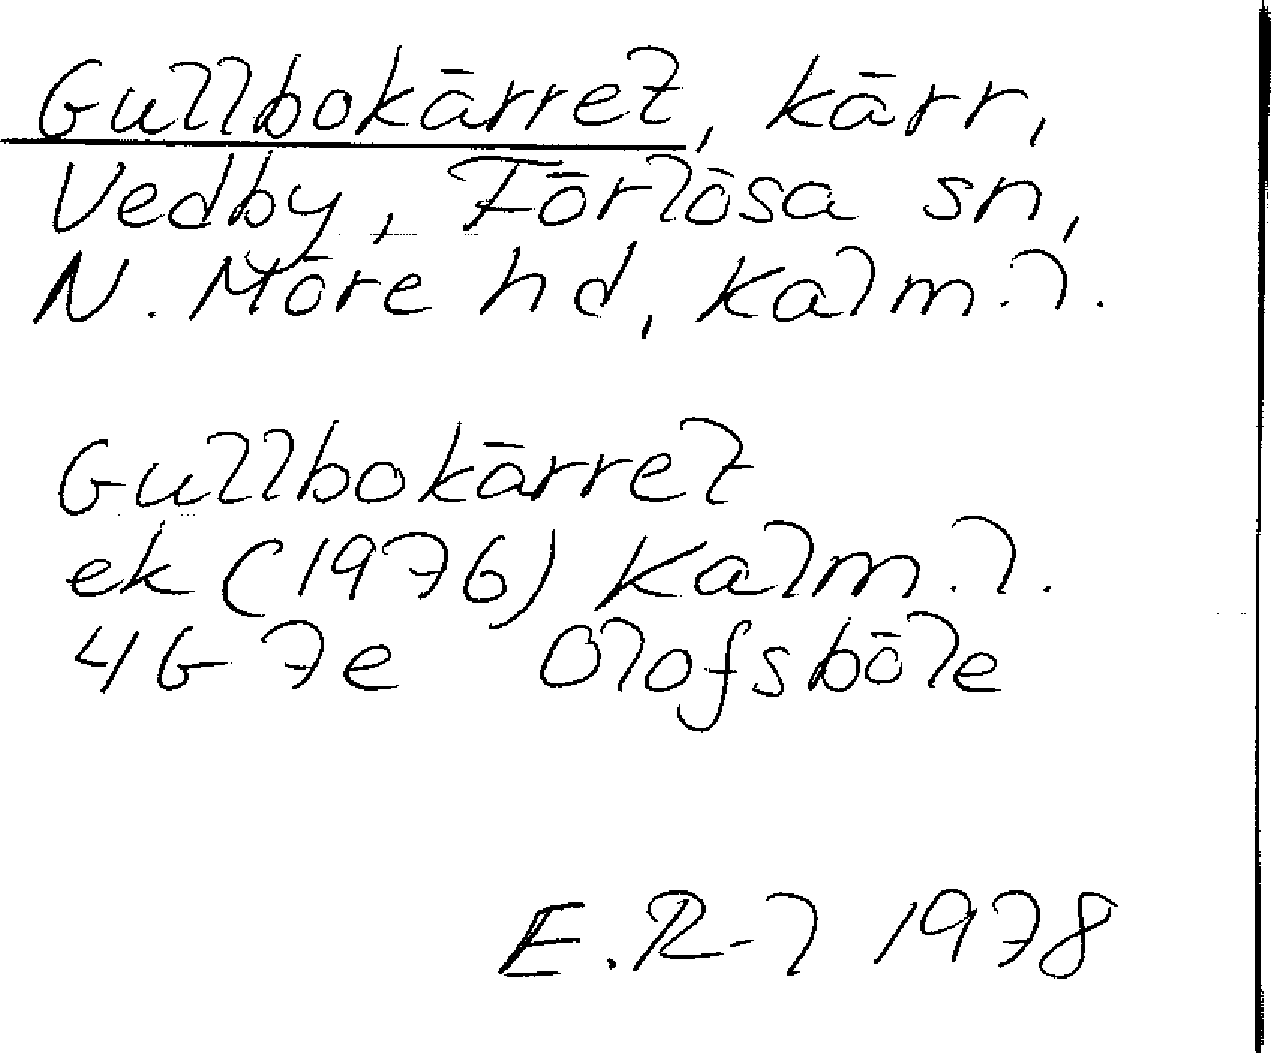 Gullbokärret, kärr,
Vedby, Förlösa sn,
N. Möre hd, Kalm. l.
Gullbokärret
ek (1976) Kalm. l.
4G 7e Olofsböle
E. R-l 1978